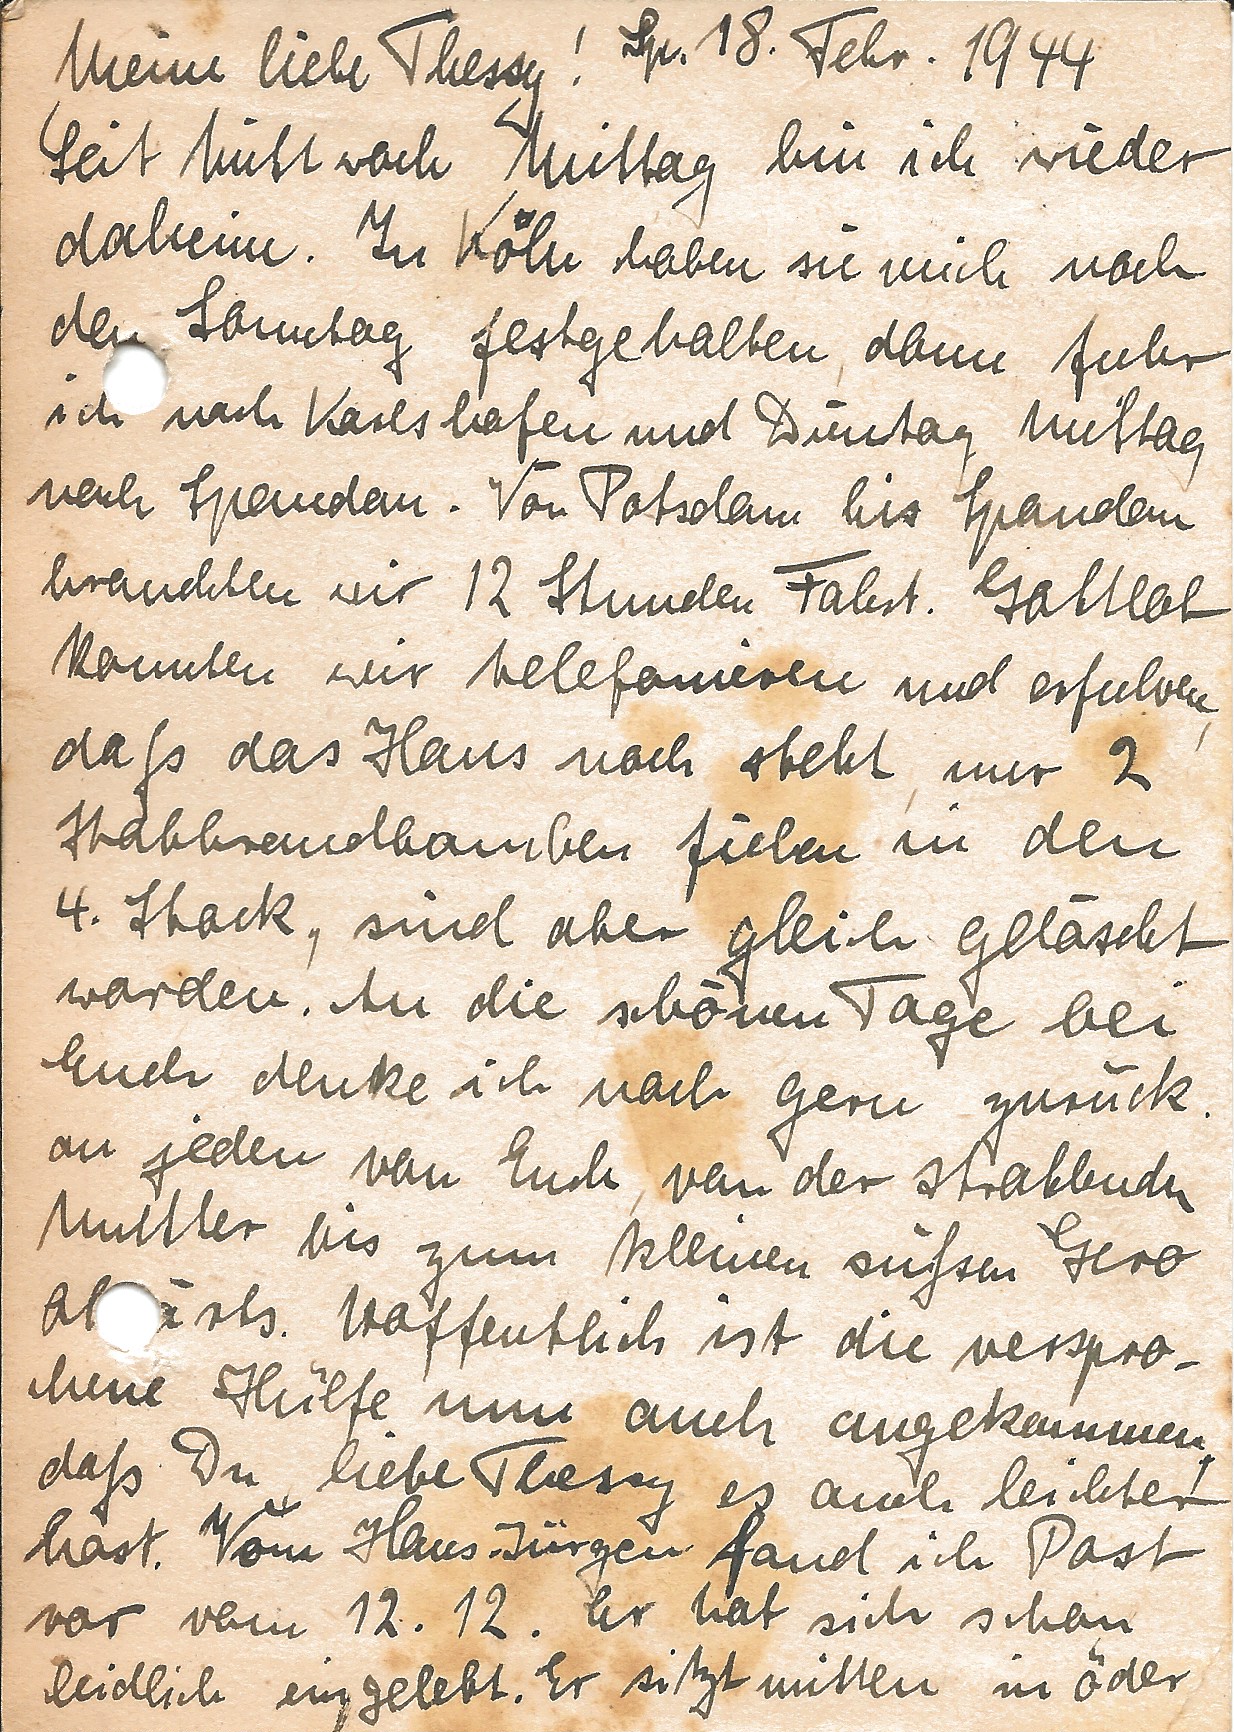 Meine liebe Thessy! Sp. 18. Febr. 1944
Seit Mittwoch Mittag bin ich wieder
daheim. In Köln haben sie mich noch
den Sonntag festgehalten, dann fuhr
ich nach Karlshafen und Dienstag Mittag
nach Spandau. Von Potsdam bis Spandau
brauchten wir 12 Stunden Fahrt. Gottlob
konnten wir telefonieren und erfuhren,
daß das Haus noch steht, nur 2
Stabbrandbomben fielen in den
4. Stock, sind aber gleich gelöscht
worden. An die schönen Tage bei
Euch denke ich noch gern zurück.
an jeden von Euch, von der strahlenden
Mutter bis zum kleinen süßen Gero
ab ärts. Hoffentlich ist die verspro-
chene Hülfe nun auch angekommen,
daß Du, liebe Thessy es auch leichter
hast. Vom Hans-Jürgen fand ich Post
vor vom 12. 12. Er hat sich schon
leidlich eingelebt. Er sitzt mitten in öder